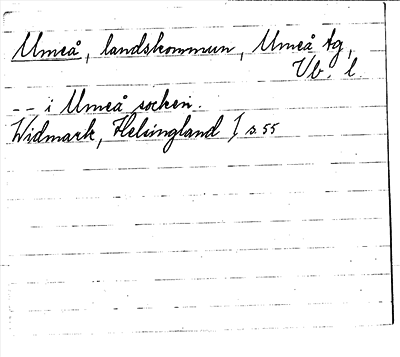 Umeå, landskommun, Umeå tg,
Vb. l.
-- i Umeå socken.
Widmark, Helsingland I s 55